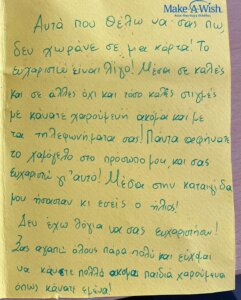 Make-A-Wish
Αυτά που θέλω να σας πω,
δεν χωράνε σε μια κάρτα! Το
ευχαριστώ είναι λίγο! Μέσα σε καλές
και σε άλλες όχι και τόσο καλές στιγμές
με κάνατε χαρούμενη ακόμα και με
τα τηλεφωνήματα σας! Πάντα αφήνατε
το χαμόγελο στο πρόσωπο μου, και σας
ευχαριστώ γι' αυτό! Μέσα στην καταιγίδα
μου ήσασταν κι εσείς ο ήλιος!
Δεν έχω λόγια να σας ευχαριστήσω!
Σας αγαπώ όλους πάρα πολύ και εύχομαι
να κάνετε πολλά ακόμα παιδιά χαρούμενα
όπως κάνατε εμένα!